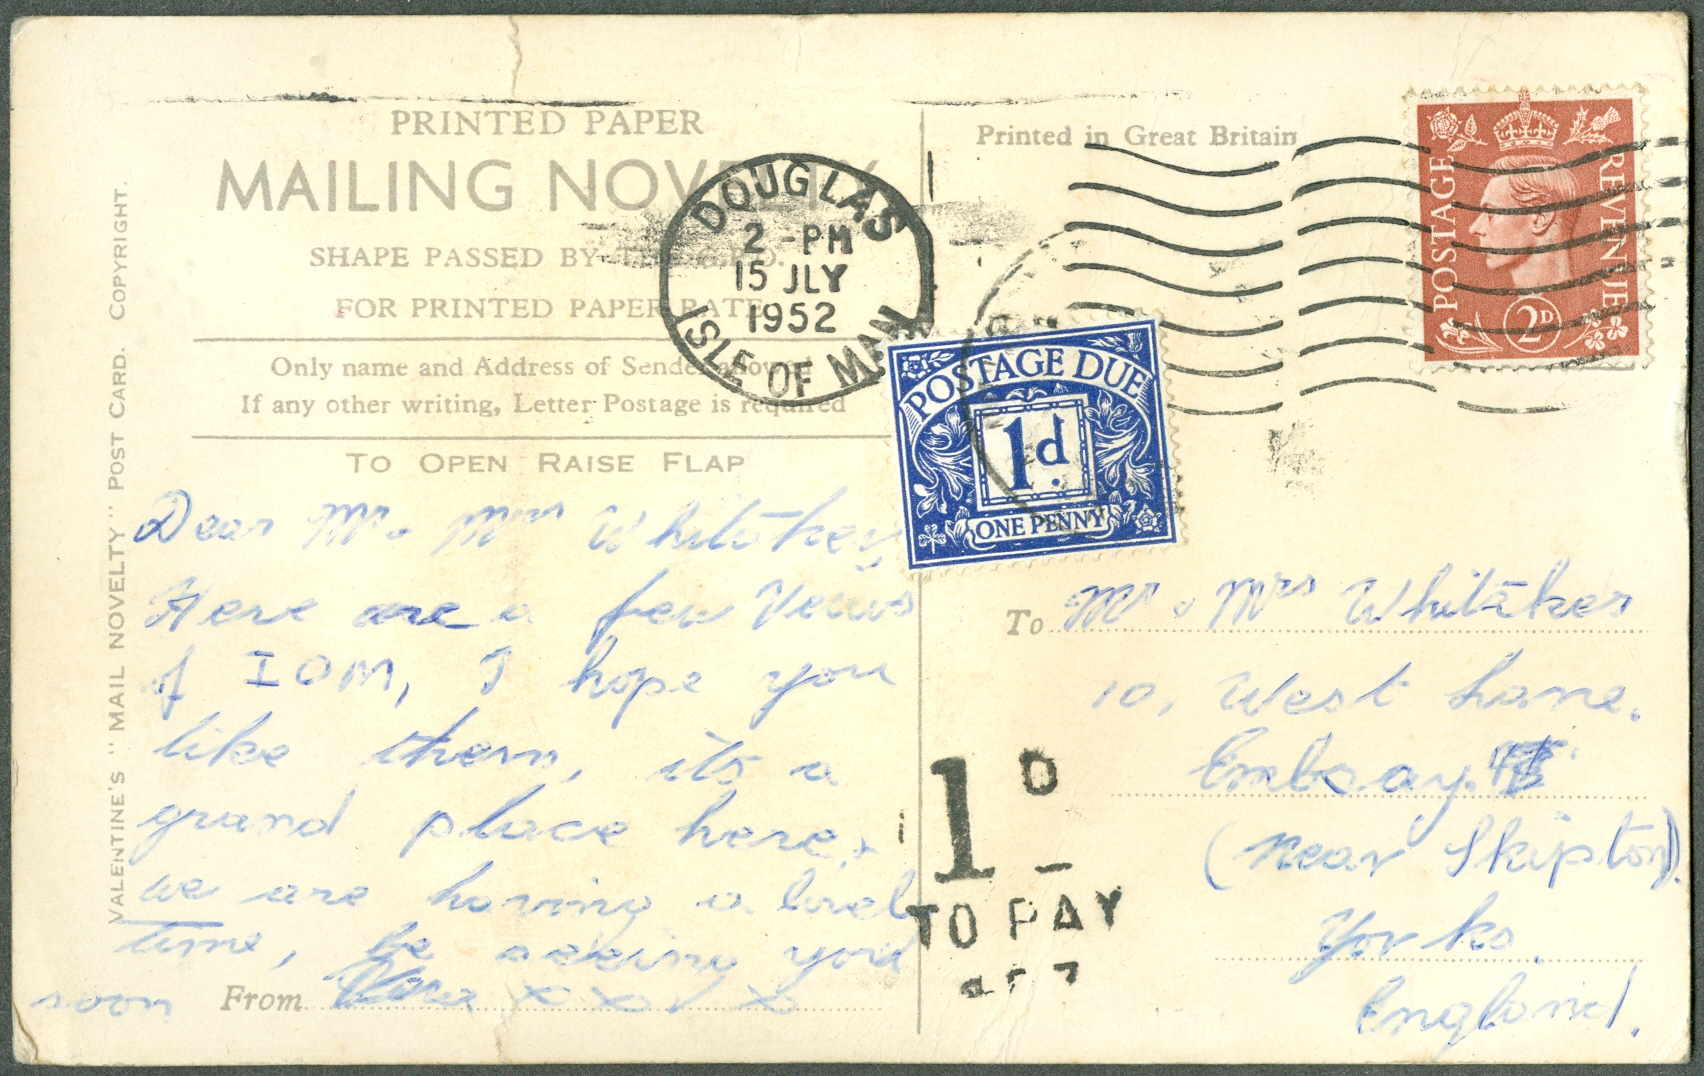 PRINTED PAPER
MAILING NOVELTY
SHAPE PASSED BY
FOR PRINTED PAPER RATE
Only name and Address of Sender allowed
If any other writing, Letter Postage is required
TO OPEN RAISE FLAP
VALENTINE'S "MAIL NOVELTY" POST CARD. COPYRIGHT.
Dear Mr & Mrs Whitakey
Here are a few Veiws
of IOM, I hope you
like them, its a
grand place here, +
we are having a lovel
time, be seeing you
soon
From xxxx
DOUGLAS
2 - PM
15 JLY
1952
ISLE OF MAN
Printed in Great Britain
POSTAGE REVENUE
2D
POSTAGE DUE
1d.
ONE PENNY
1D
TO PAY
To Mr & Mrs Whitaker
10, West Lane.
Embsay.
(Near Skipton).
Yorks.
England.